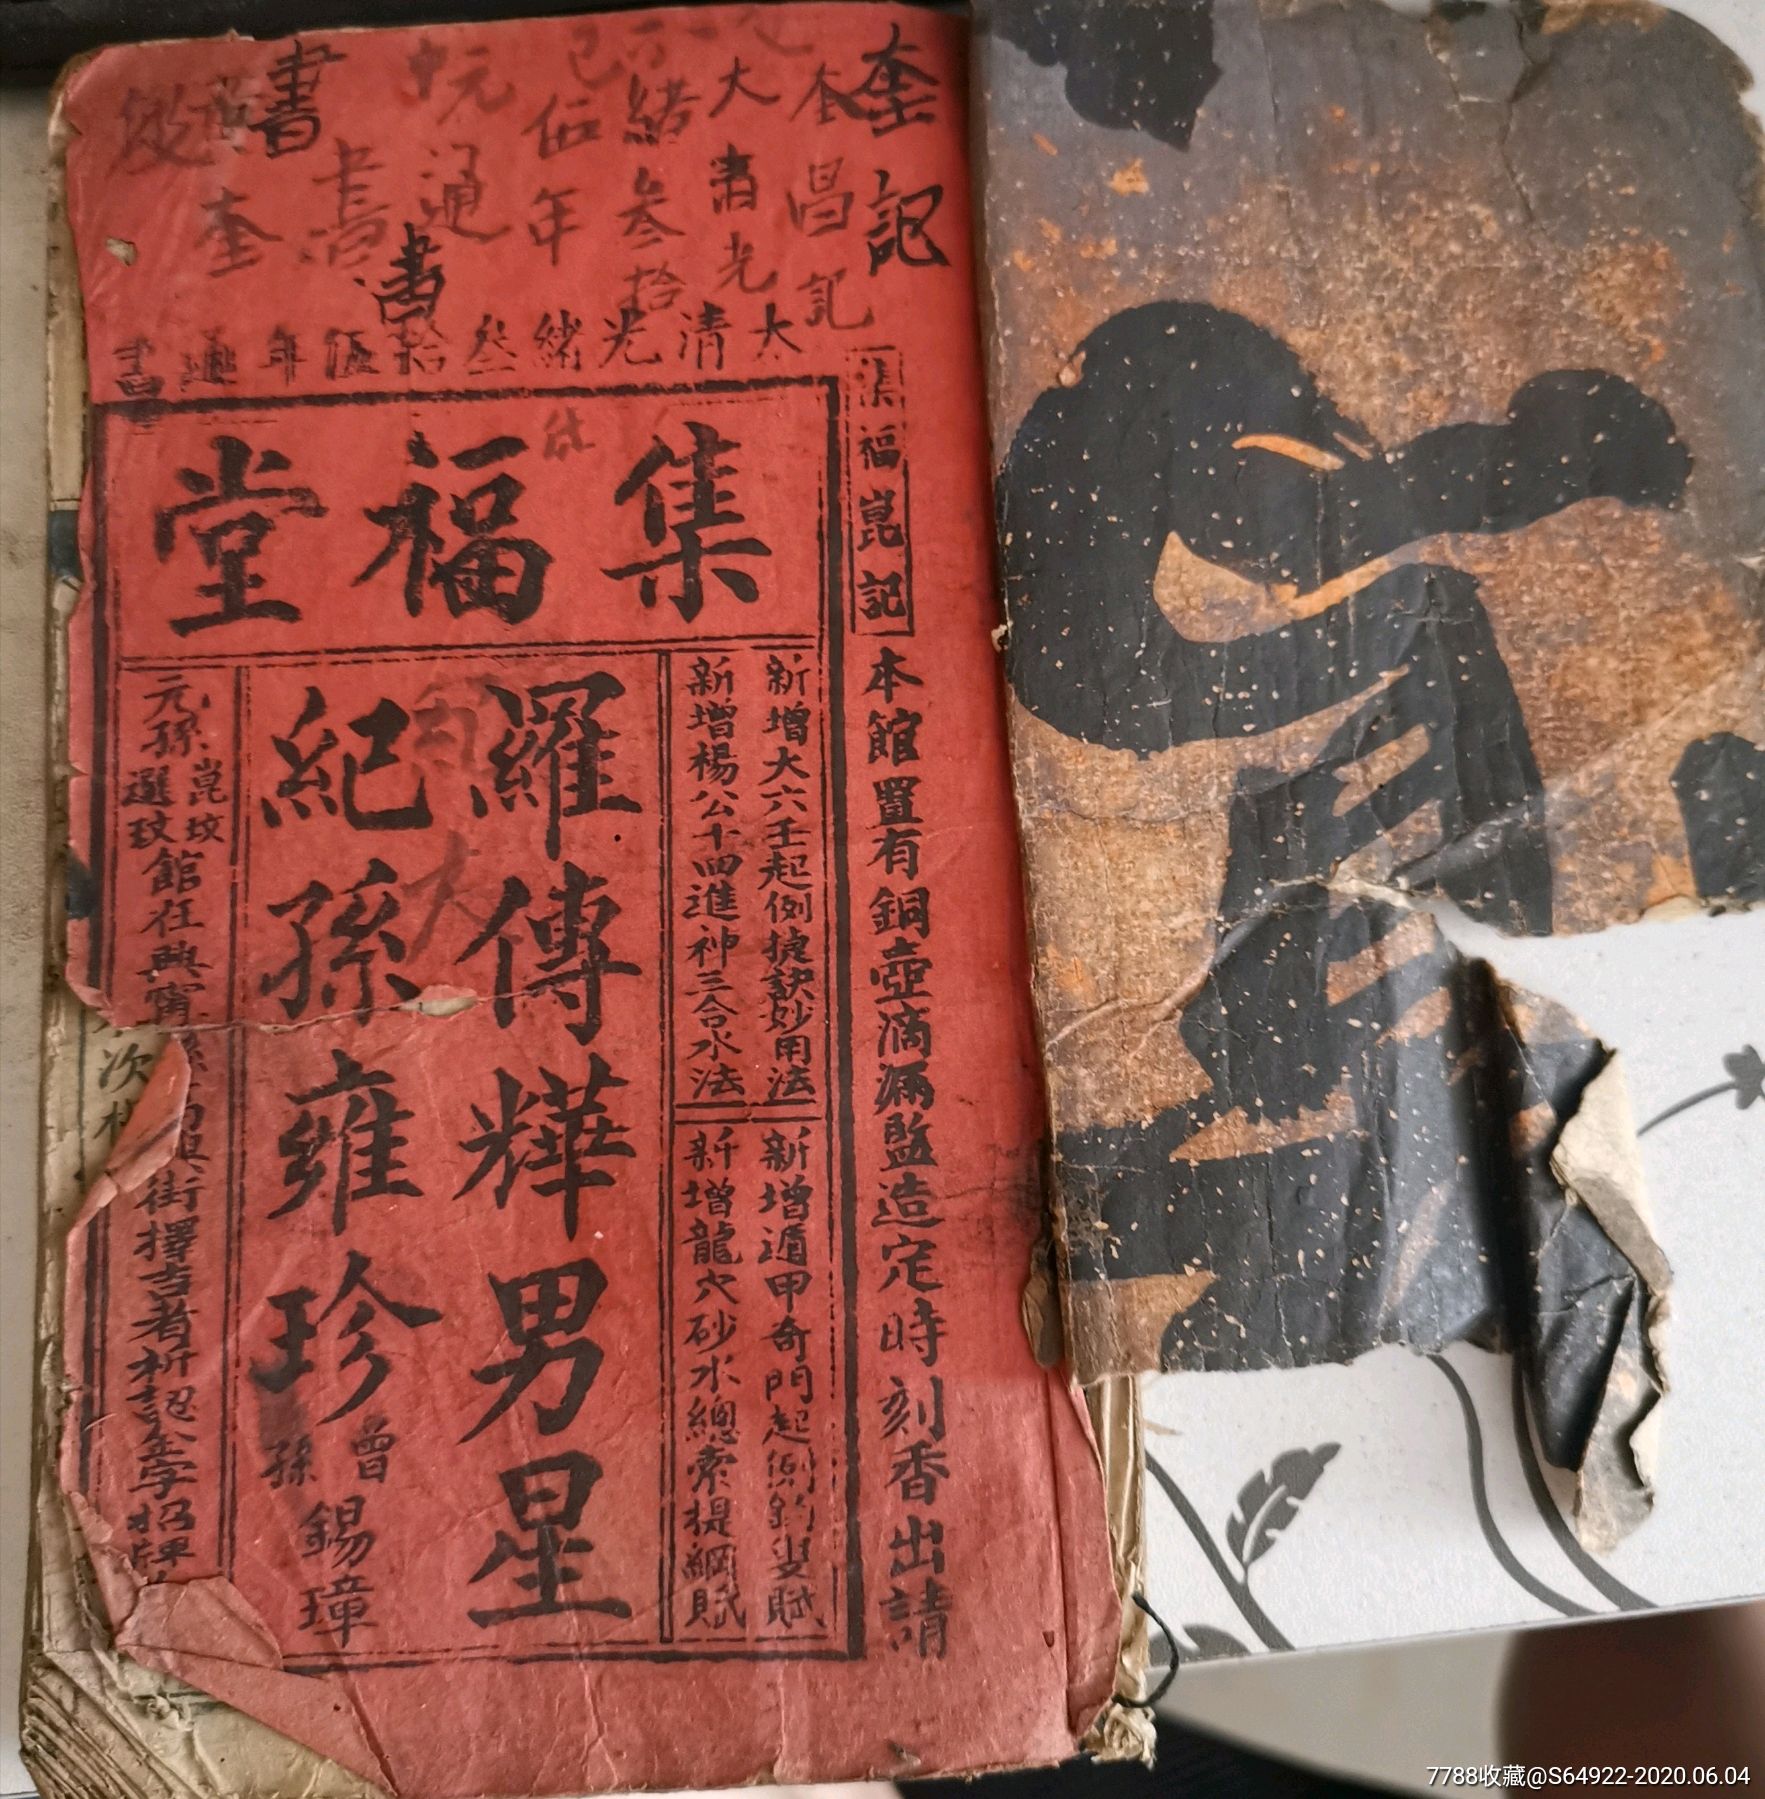 奎記
本昌記
大清光
緒叁拾
伍年
通書
書
奎
大清光緒叁拾伍年通書
集福堂
集福崑記
本館置有銅壺滴漏監造定時刻香出請
新增大六壬起例捷訣妙用法
新增遁甲奇門起例釣叟賦
新增楊公十四進神三合水法
新增龍穴砂水總索提綱賦
羅傳燁男星
紀孫雍珍
曾孫錫璋
元孫崑玟
選玟
館在興寧
街擇吉者祈認金字招牌
次
7788收藏@S64922-2020.06.04